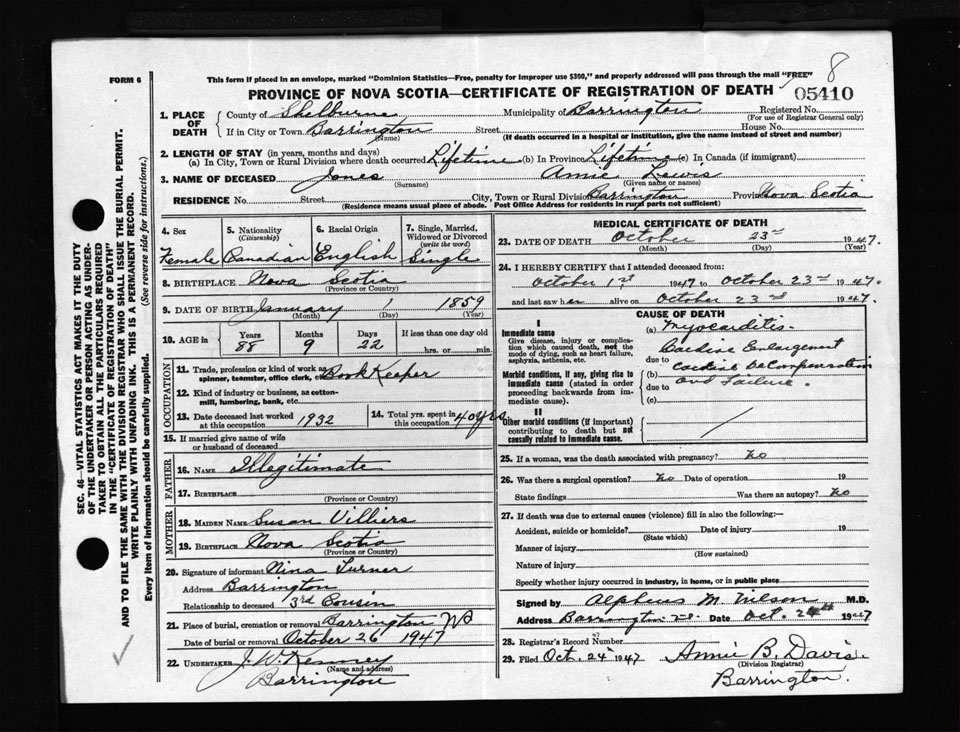 8
FORM 6
This form if placed in an envelope, marked "Dominion Statistics—Free, penalty for improper use $300," and properly addressed will pass through the mail "FREE"
PROVINCE OF NOVA SCOTIA—CERTIFICATE OF REGISTRATION OF DEATH
05410
1. PLACE OF DEATH
County of Shelburne Municipality of Barrington Registered No.
(For use of Registrar General only)
If in City or Town Barrington Street House No.
(Name) (If death occurred in a hospital or institution, give the name instead of street and number)
2. LENGTH OF STAY (in years, months and days)
(a) In City, Town or Rural Division where death occurred Lifetime (b) In Province Lifetime (c) In Canada (if immigrant)
3. NAME OF DECEASED Jones Annie Lewis
(Surname) (Given name or names)
RESIDENCE No. Street City, Town or Rural Division Barrington Province Nova Scotia
(Residence means usual place of abode. Post Office Address for residents in rural parts not sufficient)
4. Sex
Female
5. Nationality
(Citizenship)
Canadian
6. Racial Origin
English
7. Single, Married, Widowed or Divorced
(write the word)
Single
8. BIRTHPLACE Nova Scotia
(Province or Country)
9. DATE OF BIRTH January 1 1859
(Month) (Day) (Year)
10. AGE in
Years Months Days If less than one day old
88 9 22 hrs. or min.
OCCUPATION
11. Trade, profession or kind of work as spinner, teamster, office clerk, etc. Book Keeper
12. Kind of industry or business, as cotton-mill, lumbering, bank, etc.
13. Date deceased last worked at this occupation 1932
14. Total yrs. spent in this occupation 40 yrs
15. If married give name of wife or husband of deceased
FATHER
16. NAME Illegitimate
17. BIRTHPLACE
(Province or Country)
MOTHER
18. MAIDEN NAME Susan Villiers
19. BIRTHPLACE Nova Scotia
(Province or Country)
20. Signature of informant Nina Turner
Address Barrington
Relationship to deceased 3rd Cousin
21. Place of burial, cremation or removal Barrington NS
Date of burial or removal October 26 1947
22. UNDERTAKER J. W. Kenney
(Name and address)
Barrington
MEDICAL CERTIFICATE OF DEATH
23. DATE OF DEATH October 23rd 1947.
(Month) (Day) (Year)
24. I HEREBY CERTIFY that I attended deceased from:
October 1st 1947 to October 23rd 1947.
and last saw her alive on October 23rd 1947.
CAUSE OF DEATH
I
Immediate cause
Give disease, injury or complication which caused death, not the mode of dying, such as heart failure, asphyxia, asthenia, etc.
(a) Myocarditis-
Cardiac Enlargement
due to
Morbid conditions, if any, giving rise to immediate cause (stated in order proceeding backwards from immediate cause).
(b) Cardiac Decompensation
due to and Failure.
(c)
II
Other morbid conditions (if important) contributing to death but not causally related to immediate cause.
25. If a woman, was the death associated with pregnancy? No
26. Was there a surgical operation? No Date of operation 19
State findings Was there an autopsy? No
27. If death was due to external causes (violence) fill in also the following:—
Accident, suicide or homicide? Date of injury 19
(State which)
Manner of injury
(How sustained)
Nature of injury
Specify whether injury occurred in industry, in home, or in public place
Signed by Alpheus M. Wilson M.D.
Address Barrington N.S. Date Oct. 24th 1947
28. Registrar's Record Number
29. Filed Oct. 24 1947 Annie B. Davis.
(Division Registrar)
Barrington.
SEC. 46—VITAL STATISTICS ACT MAKES IT THE DUTY OF THE UNDERTAKER OR PERSON ACTING AS UNDERTAKER TO OBTAIN ALL THE PARTICULARS REQUIRED IN THE "CERTIFICATE OF REGISTRATION OF DEATH" AND TO FILE THE SAME WITH THE DIVISION REGISTRAR WHO SHALL ISSUE THE BURIAL PERMIT.
WRITE PLAINLY WITH UNFADING INK. THIS IS A PERMANENT RECORD.
Every item of information should be carefully supplied. (See reverse side for instructions.)